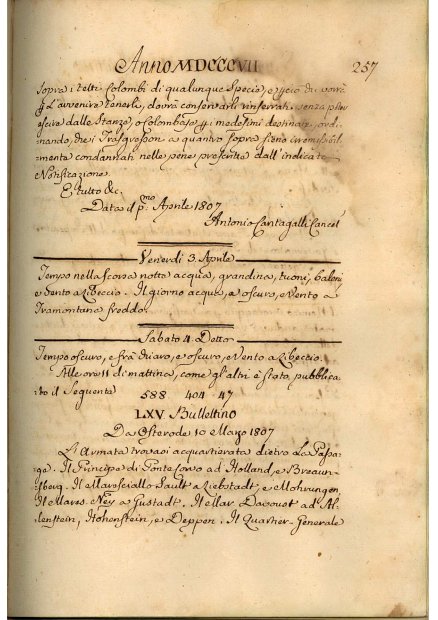 Anno MDCCCVII 257
sopra i tetti Colombi di qualunque Specie, e cio di vorrà
p l'avvenire tenerli, dovrà conservarli rinserrati, senza poter
uscire dalle Stanze, o Colombaje p i medesimi destinate, ordi
nando, che i Trasgressori a quanto sopra sieno irremisibil
mente condannati nelle pene prescritte dall'indicata
Notificazione.
E tutto &c.
Data il p.mo Aprile 1807
Antonio Cantagalli Cancel
Venerdi 3. Aprile
Tempo nella scorsa notte acqua, grandina, tuoni, baleni
e vento a Libeccio. Il giorno acqua, e oscuro, e Vento a
Tramontana freddo.
Sabato 4. Detto
Tempo oscuro, e frà chiaro, e oscuro, e Vento a Libeccio.
Alle ore 11 di mattina, come gl'altri è stato pubblica
to il Seguente
588 404 - 47
LXV. Bullettino
Da Osterode 10 Marzo 1807
L'Armata trovasi acquartierata dietro La Passar
ge. Il Principe di Ponte Corvo ad Holland, e Braun
sberg. Il Maresciallo Soult a Liebstadt, e Mohrungen
Il Mares. Ney a Gustadt. Il Mar Davoust ad Al
lenstein, Hohenstein, e Deppen. Il Quartier-Generale